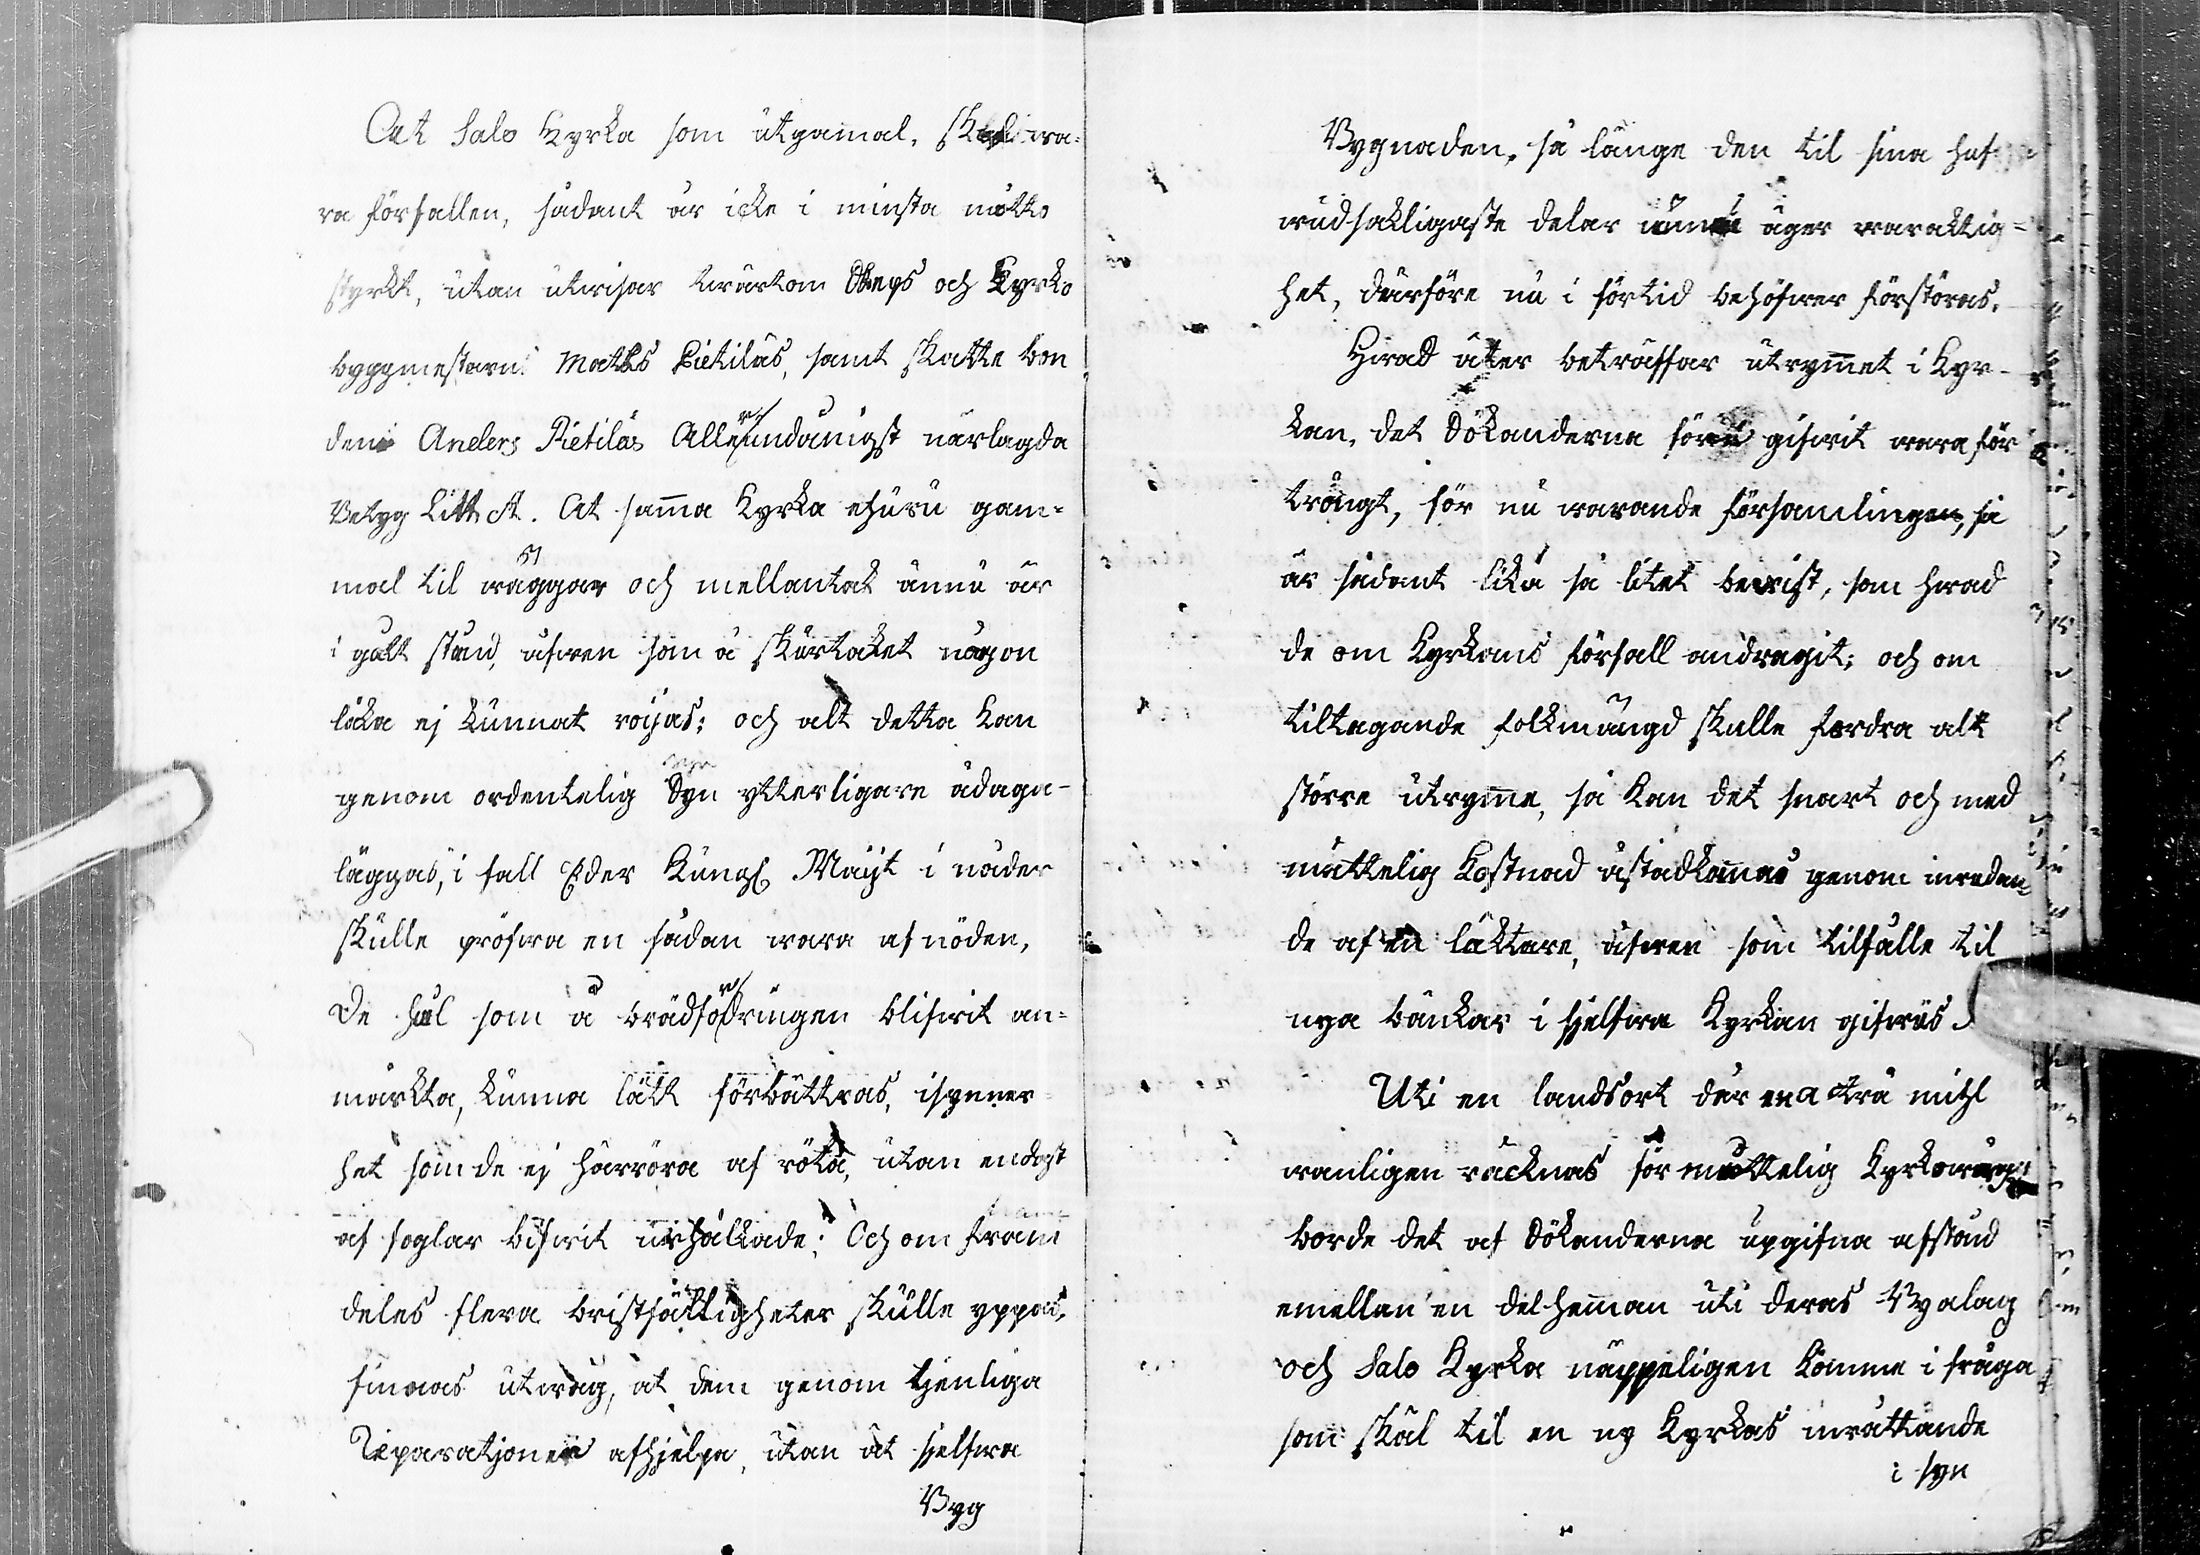 At Salo Kyrka som utgamal, skal wa-
ra förfallen, sådant är icke i minsta måtto
styrkt, utan utwisar twärtom Skeps och Kyrko
byggmestarns Matts Pietiläs, samt skatte bon
dens Anders Pietiläs Allerundånigst närlagda
Betyg Litt A. At samma Kyrka ehuru gam-
mal til wäggar och mellantak ännu är
i godt stånd, äfwen som å skärtaket någon
läka ej kunnat röijas; och alt detta kan
genom ordentelig Syn ytterligare ådaga-
läggas, i fall Eder Kungl Maijt i nåder
skulle pröfwa en sådan wara af nöden,
De hål som å brädfodringen blifwit an-
märkta, kunna lätt förbättras, isynner-
het som de ej härröra af röta, utan endast
af foglar blifwit urhålkade; Och om fram
deles flera bristfälligheter skulle yppas,
finnas utwäg, at dem genom tjenliga
Reparationer afhjelpa, utan at sjelfwa
Byg
Bygnaden, så länge den til sina huf
wudsakligaste delar ännu äger waraktig-
het, därföre nu i förtid behöfwer förstöras.
Hwad åter beträffar utrymmet i Kyr-
kan, det Sökanderna före gifwit wara för
trångt, för nu warande församlingen, så
är sådant lika så litet bewist, som hwad
de om Kyrkans förfall andragit; och om
tiltagande folkmängd skulle fordra alt
större utrymme, så kan det snart och med
måttelig Kostnad åstadkommas genom inredan-
de af en läktare, äfwen som tilfälle til
nya bänkar i sjelfwa Kyrkan gifwes.
Uti en landsort där en a två mihl
wanligen räcknas för måttelig Kyrkowäg,
borde det af Sökanderna upgifna afstånd
emellan en del hemman uti deras Byalag
och Salo Kyrka näppeligen komme i fråga
som skäl til en ny Kyrkas inrättande
i syn